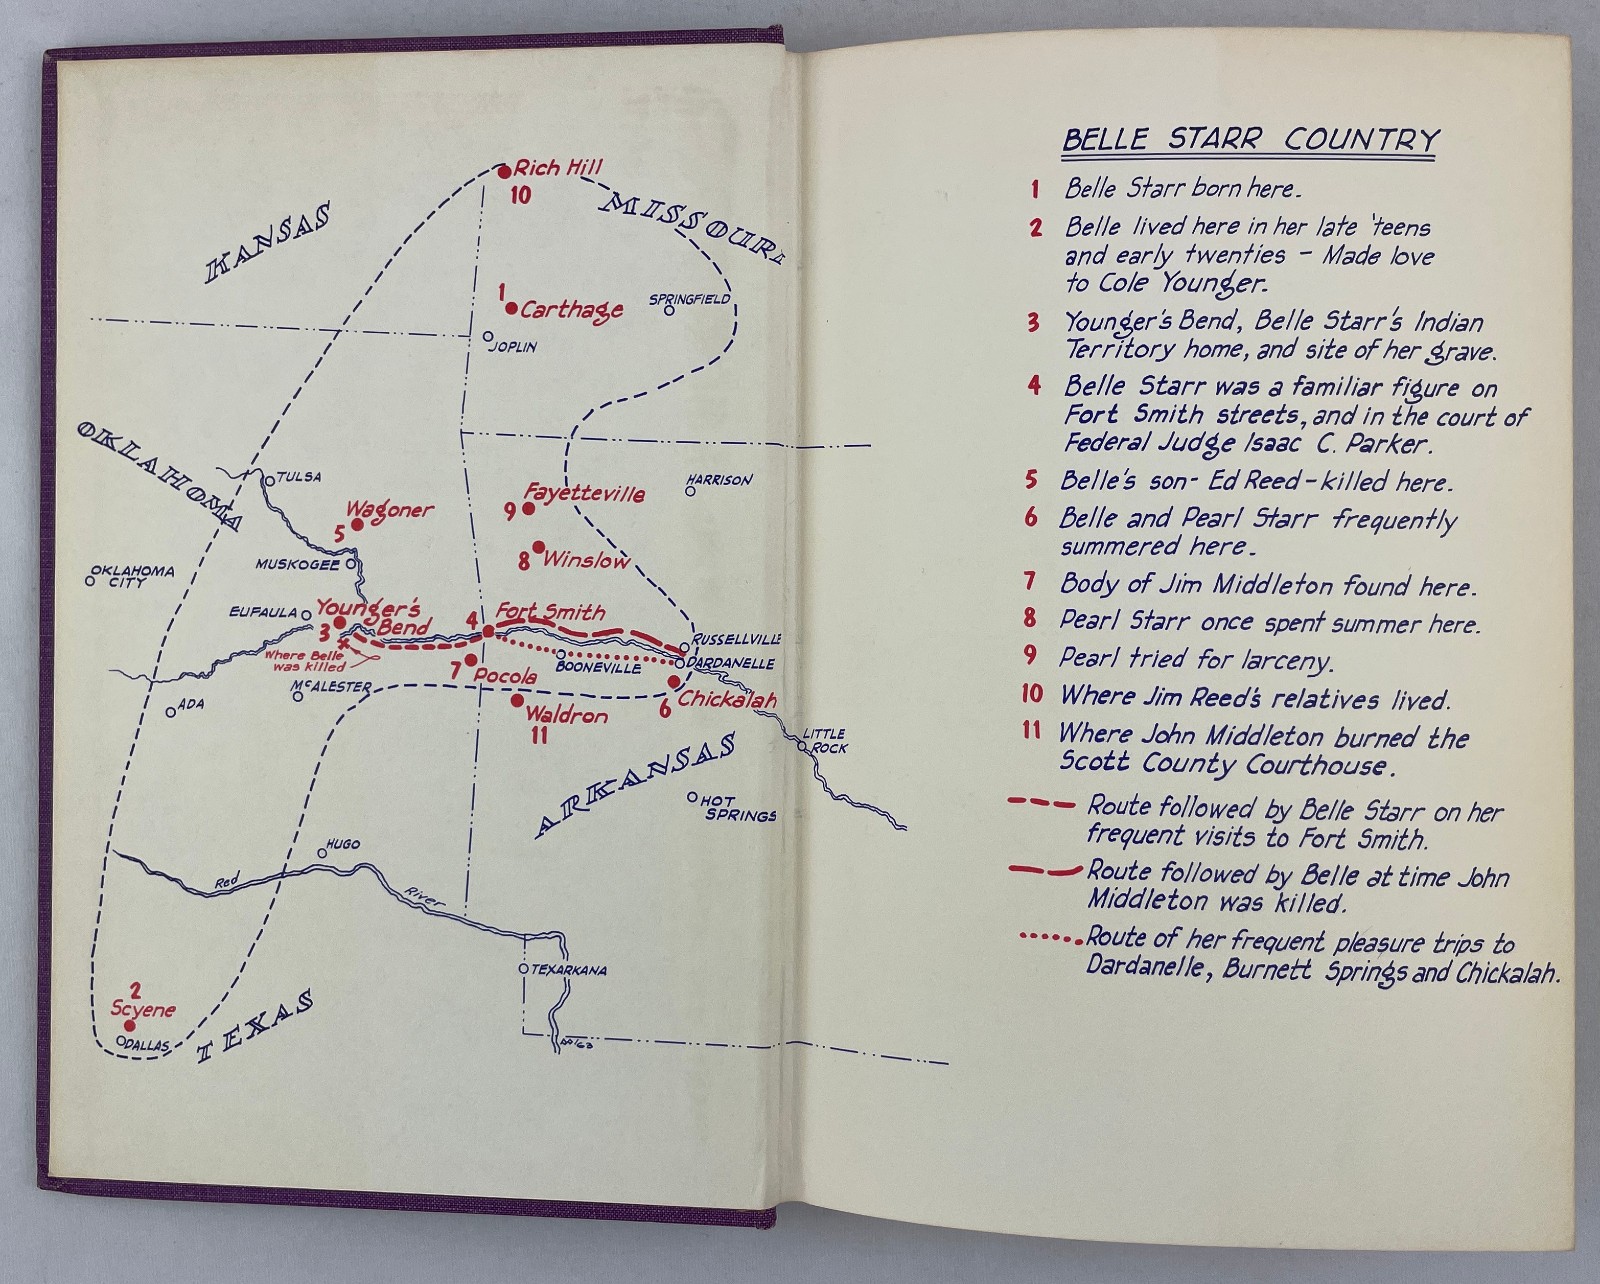 Rich Hill
10
MISSOURI
KANSAS
1
Carthage
SPRINGFIELD
JOPLIN
OKLAHOMA
TULSA
HARRISON
Fayetteville
9
Wagoner
5
8
Winslow
MUSKOGEE
OKLAHOMA
CITY
EUFAULA
Younger's
Bend
3
4
Fort Smith
RUSSELLVILLE
Where Belle
was killed
BOONEVILLE
DARDANELLE
7
Pocola
McALESTER
6
Chickalah
ADA
Waldron
11
LITTLE
ROCK
ARKANSAS
HOT
SPRINGS
HUGO
Red
River
TEXARKANA
2
Scyene
DALLAS
TEXAS
BELLE STARR COUNTRY
1 Belle Starr born here.
2 Belle lived here in her late 'teens
and early twenties - Made love
to Cole Younger.
3 Younger's Bend, Belle Starr's Indian
Territory home, and site of her grave.
4 Belle Starr was a familiar figure on
Fort Smith streets, and in the court of
Federal Judge Isaac C. Parker.
5 Belle's son - Ed Reed - killed here.
6 Belle and Pearl Starr frequently
summered here.
7 Body of Jim Middleton found here.
8 Pearl Starr once spent summer here.
9 Pearl tried for larceny.
10 Where Jim Reed's relatives lived.
11 Where John Middleton burned the
Scott County Courthouse.
Route followed by Belle Starr on her
frequent visits to Fort Smith.
Route followed by Belle at time John
Middleton was killed.
Route of her frequent pleasure trips to
Dardanelle, Burnett Springs and Chickalah.